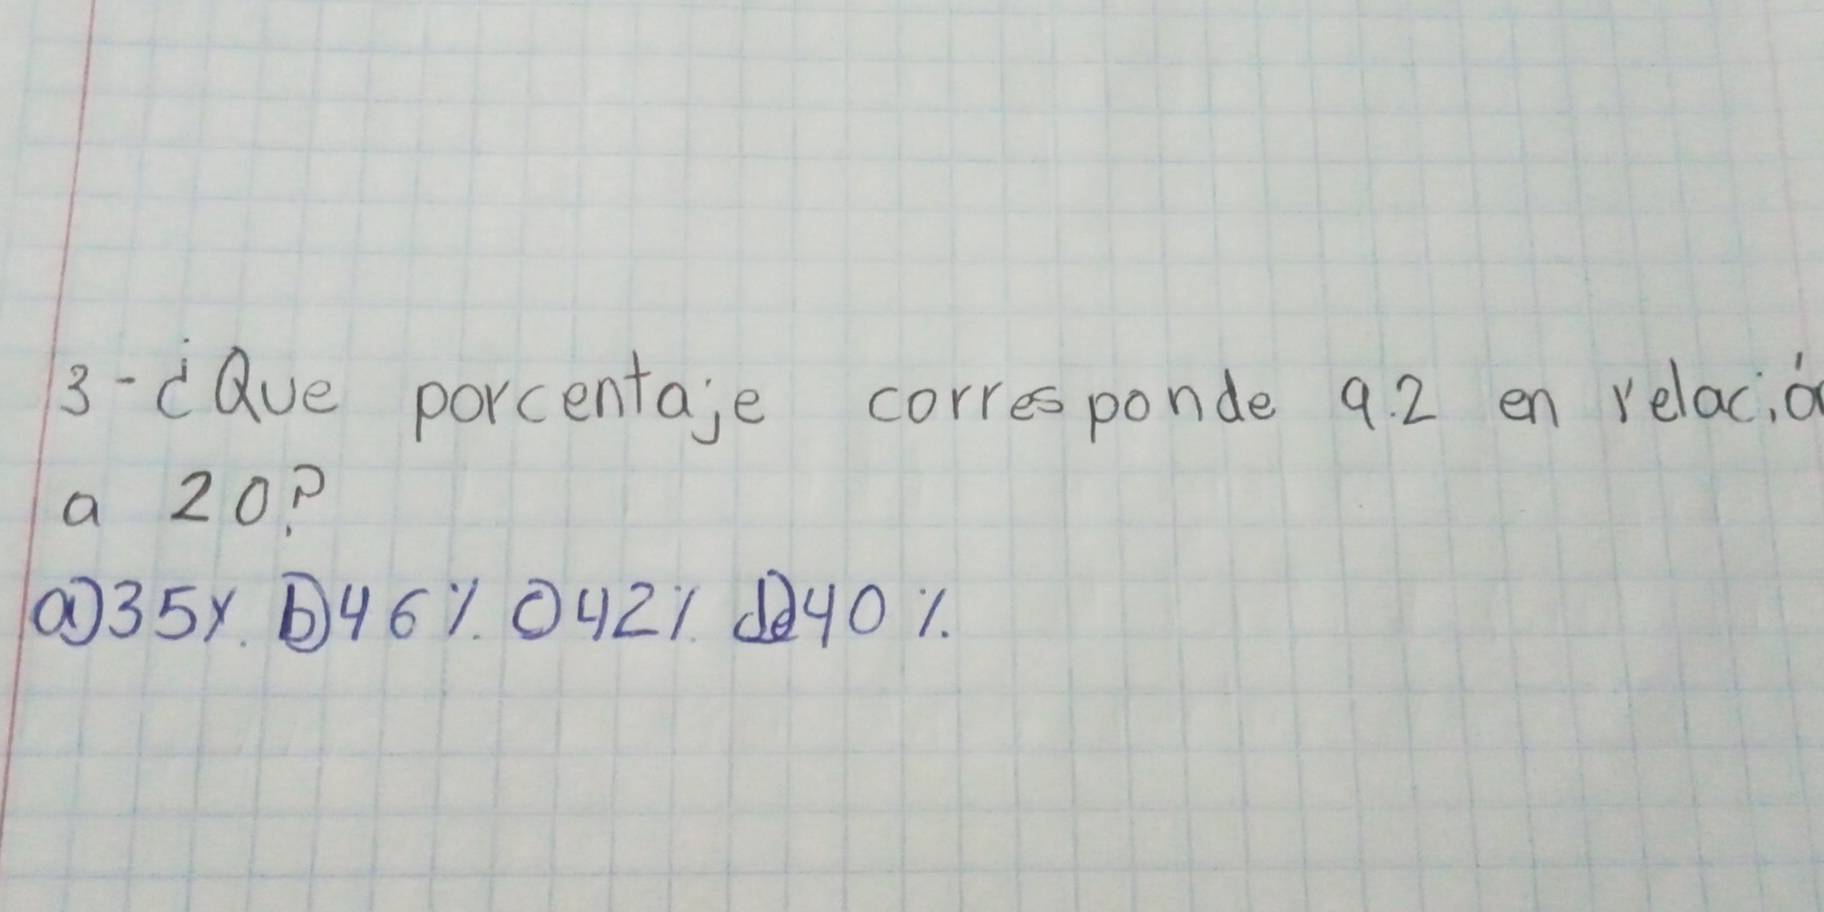 3-¿Que porcentaje corresponde 9.2 en relación
a 20?
a)35%. b)46%. c)42%. d)40%.